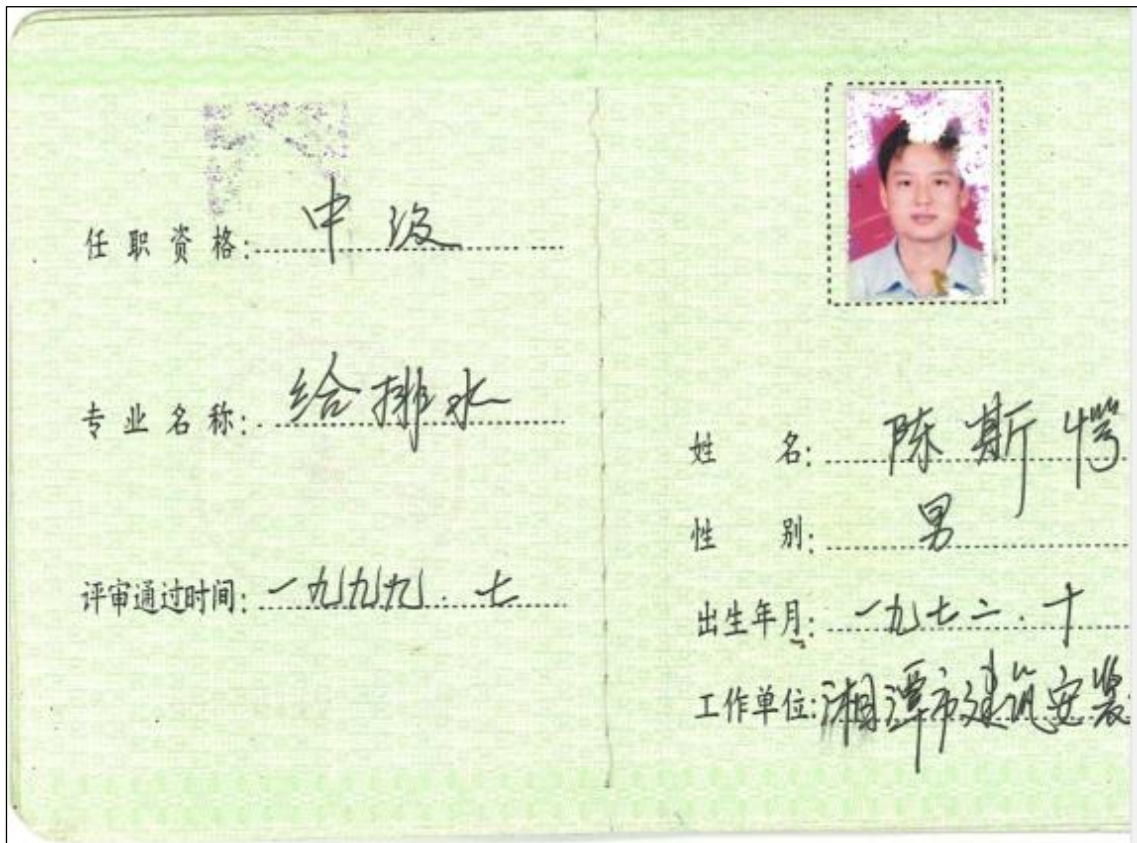 任职资格: 中级
专业名称: 给排水
评审通过时间: 一九九九.七
姓名: 陈斯愕
性别: 男
出生年月: 一九七二.十
工作单位: 湘潭市建筑安装